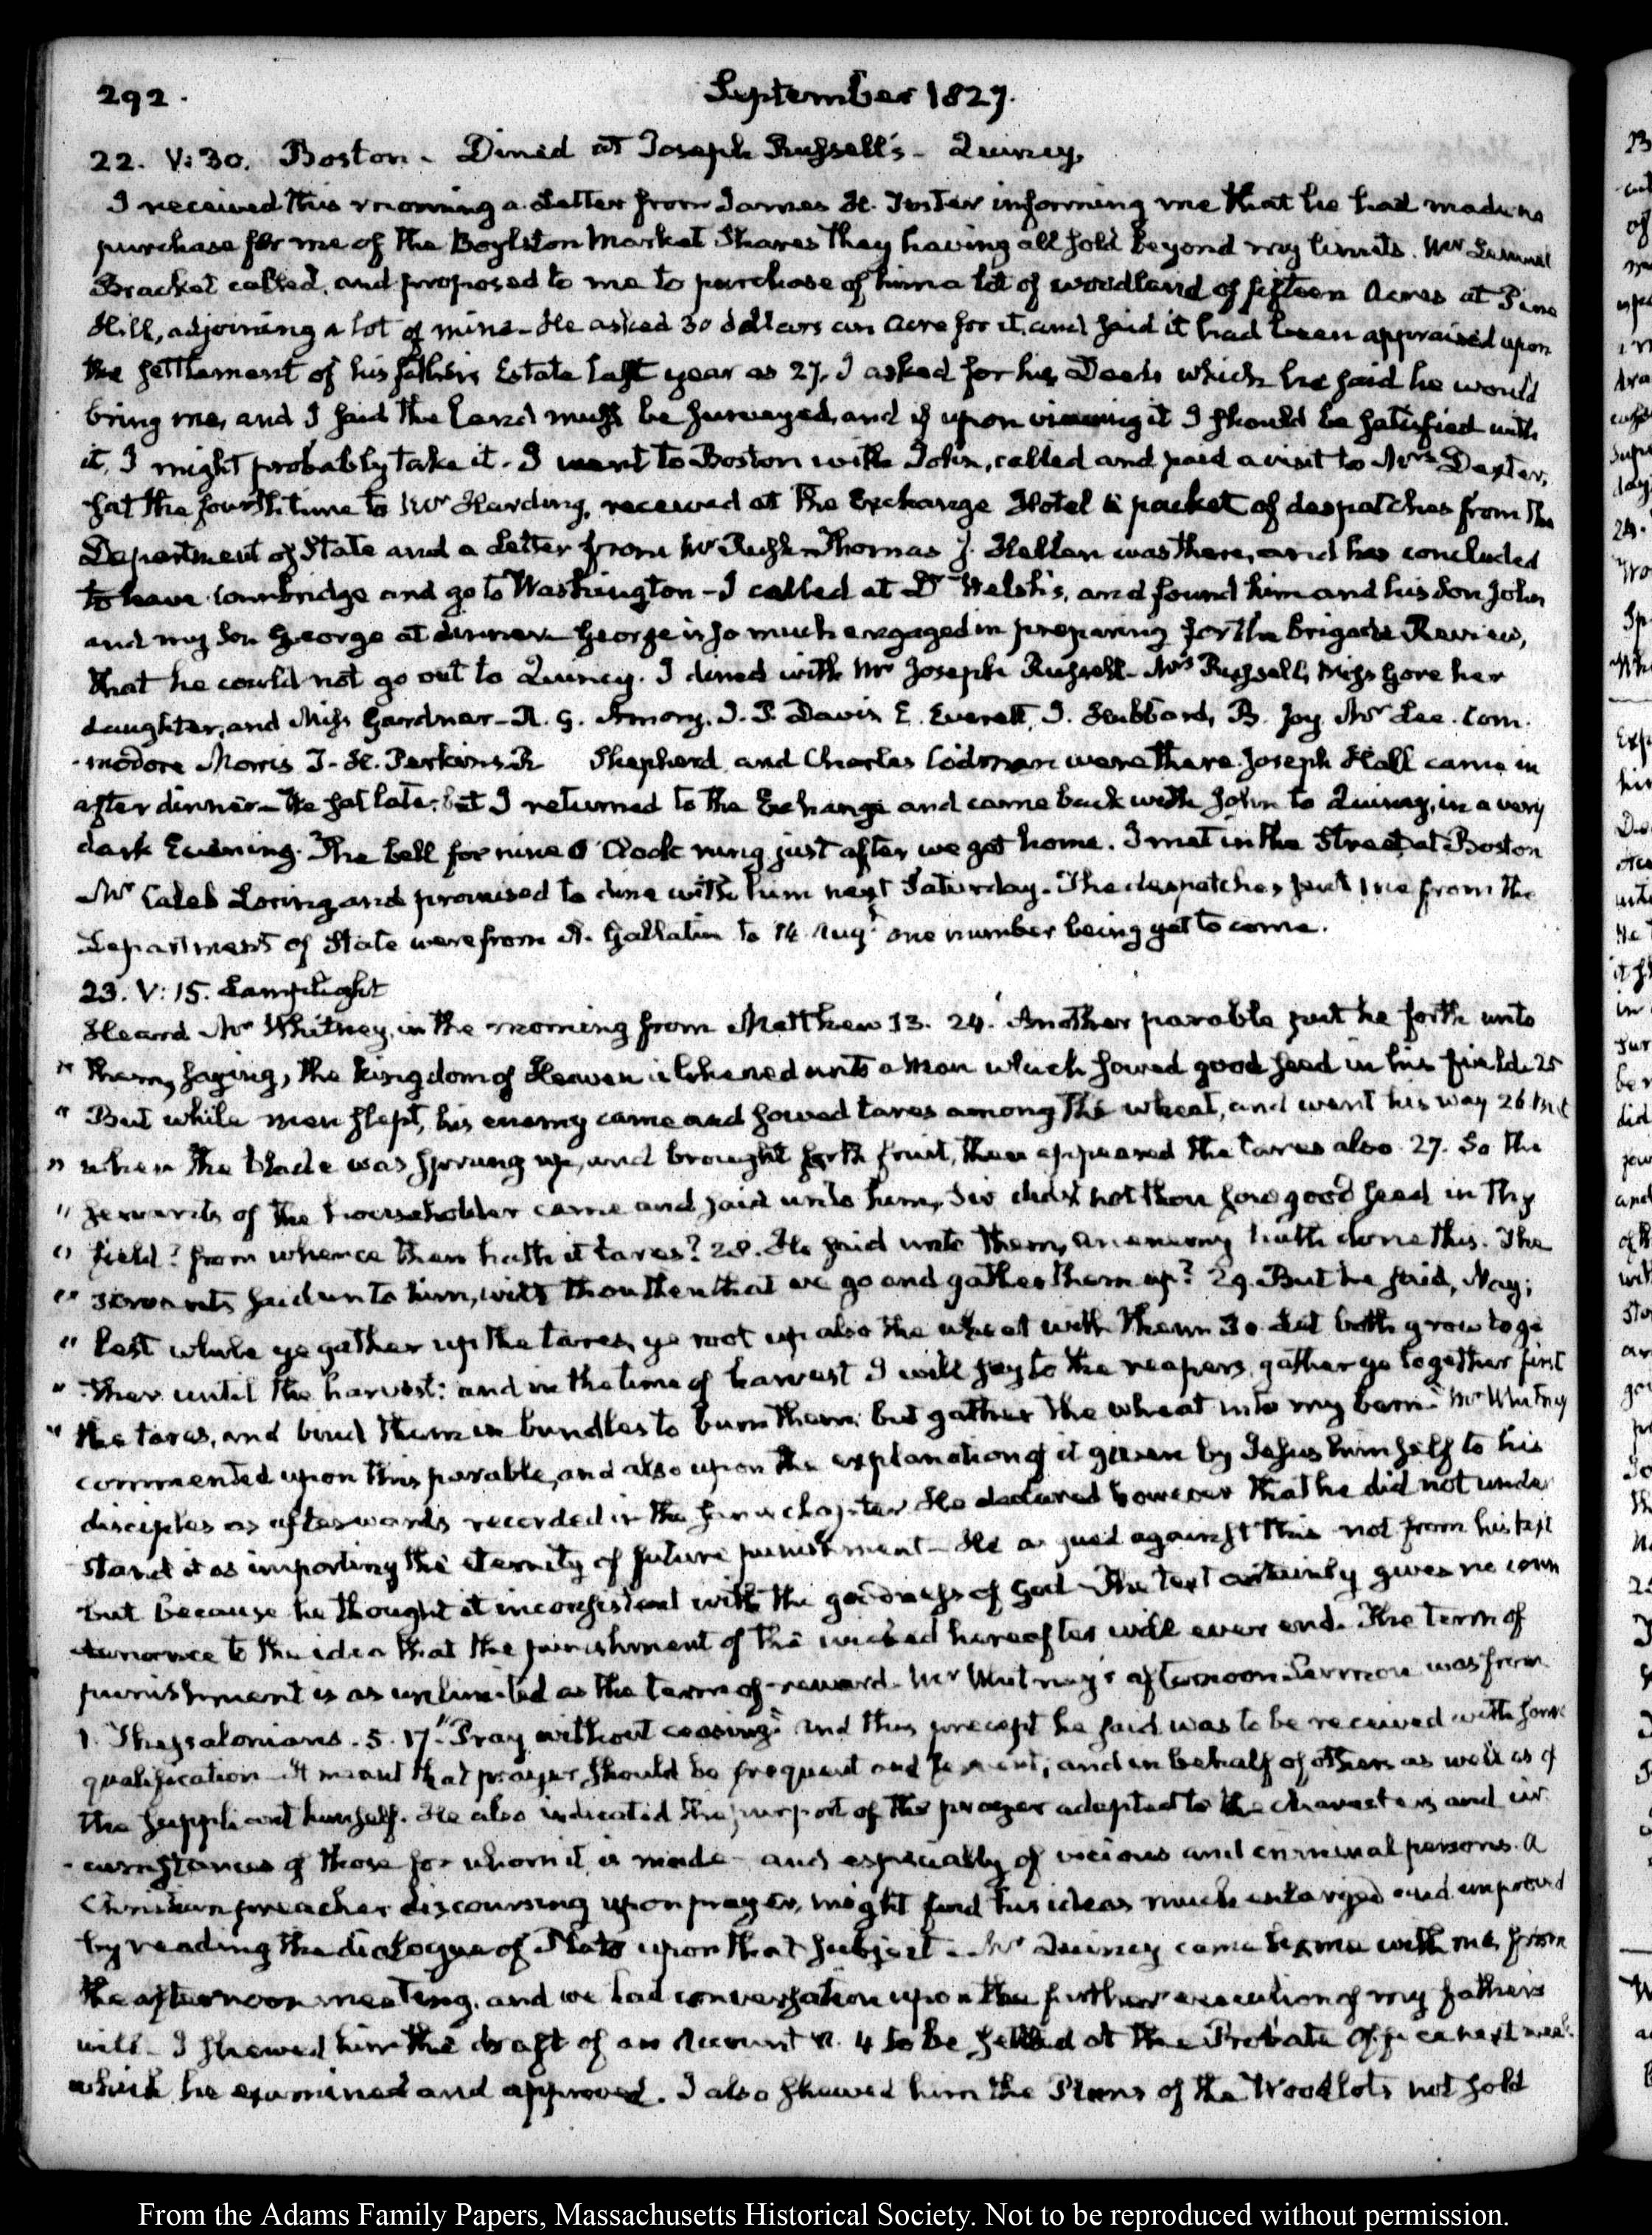 292.
September 1827.
22. V:30. Boston - Dined at Joseph Russell's - Quincy.
I received this morning a Letter from James H. Foster informing me that he had made no
purchase for me of the Boylston Market Shares they having all sold beyond my limits. Mr Lemuel
Bracket called, and proposed to me to purchase of him a lot of woodland of fifteen Acres at Pine
Hill, adjoining a lot of mine - He asked 30 dollars an Acre for it, and said it had been appraised upon
the settlement of his father's Estate last year as 27. I asked for his Deeds which he said he would
bring me, and I said the land must be surveyed, and if upon viewing it I should be satisfied with
it, I might probably take it. I went to Boston with John, called and paid a visit to Mrs Dexter,
sat the fourth time to Mr Harding, received at the Exchange Hotel a packet of despatches from the
Department of State and a Letter from Mr Rush - Thomas J. Hellen was there, and has concluded
to leave Cambridge and go to Washington - I called at Dr Welsh's, and found him and his Son John
and my Son George at dinner. George is so much engaged in preparing for the Brigade Review,
that he could not go out to Quincy. I dined with Mr Joseph Russell - Mrs Russell, Miss Gore her
daughter, and Miss Gardner - R. G. Amory, I. P. Davis E. Everett, S. Hubbard, B. Joy, Mr Lee. Com.
-modore Morris T. H. Perkins R Shepherd and Charles Codman were there. Joseph Hall came in
after dinner - We sat late, but I returned to the Exchange and came back with John to Quincy, in a very
dark Evening. The bell for nine O'Clock rung just after we got home. I met in the Street at Boston
Mr Caleb Loring and promised to dine with him next Saturday. The despatches sent me from the
Department of State were from A. Gallatin to 14 Augt one number being yet to come.
23. V:15. Lamplight
Heard Mr Whitney, in the morning from Matthew 13. 24. Another parable put he forth unto
" them, saying, The kingdom of Heaven is likened unto a Man which sowed good seed in his field. 25
" But while men slept, his enemy came and sowed tares among the wheat, and went his way 26 But
" when the blade was sprung up, and brought forth fruit, then appeared the tares also. 27. So the
" servants of the householder came and said unto him, Sir didst not thou sow good seed in thy
" field? from whence then hath it tares? 28. He said unto them, an enemy hath done this. The
" servants said unto him, wilt thou then that we go and gather them up? 29. But he said, Nay;
" lest while ye gather up the tares, ye root up also the wheat with them 30. Let both grow toge
" ther until the harvest: and in the time of harvest I will say to the reapers, gather ye together first
" the tares, and bind them in bundles to burn them: but gather the wheat into my barn." Mr Whitney
commented upon this parable, and also upon the explanation of it given by Jesus himself to his
disciples as afterwards recorded in the same chapter. He declared however that he did not under
stand it as importing the eternity of future punishment - He argued against this not from his text
but because he thought it inconsistent with the goodness of God - The text certainly gives no coun
-tenance to the idea that the punishment of the wicked hereafter will ever end. The term of
punishment is as unlimited as the term of reward. Mr Whitney's afternoon Sermon was from
1. Thessalonians. 5. 17. "Pray without ceasing" and this precept he said was to be received with some
qualification - It meant that prayer should be frequent and fervent; and in behalf of others as well as of
the suppliant himself. He also indicated the purport of the prayer adapted to the characters and cir
-cumstances of those for whom it is made - and especially of vicious and criminal persons. A
Christian preacher discoursing upon prayer, might find his ideas much enlarged and improved
by reading the dialogue of Plato upon that subject. Mr Quincy came home with me from
the afternoon meeting, and we had conversation upon the further execution of my father's
will - I shewed him the draft of an Account N. 4 to be settled at the Probate Office next week
which he examined and approved. I also shewed him the Plans of the Woodlots not sold
From the Adams Family Papers, Massachusetts Historical Society. Not to be reproduced without permission.